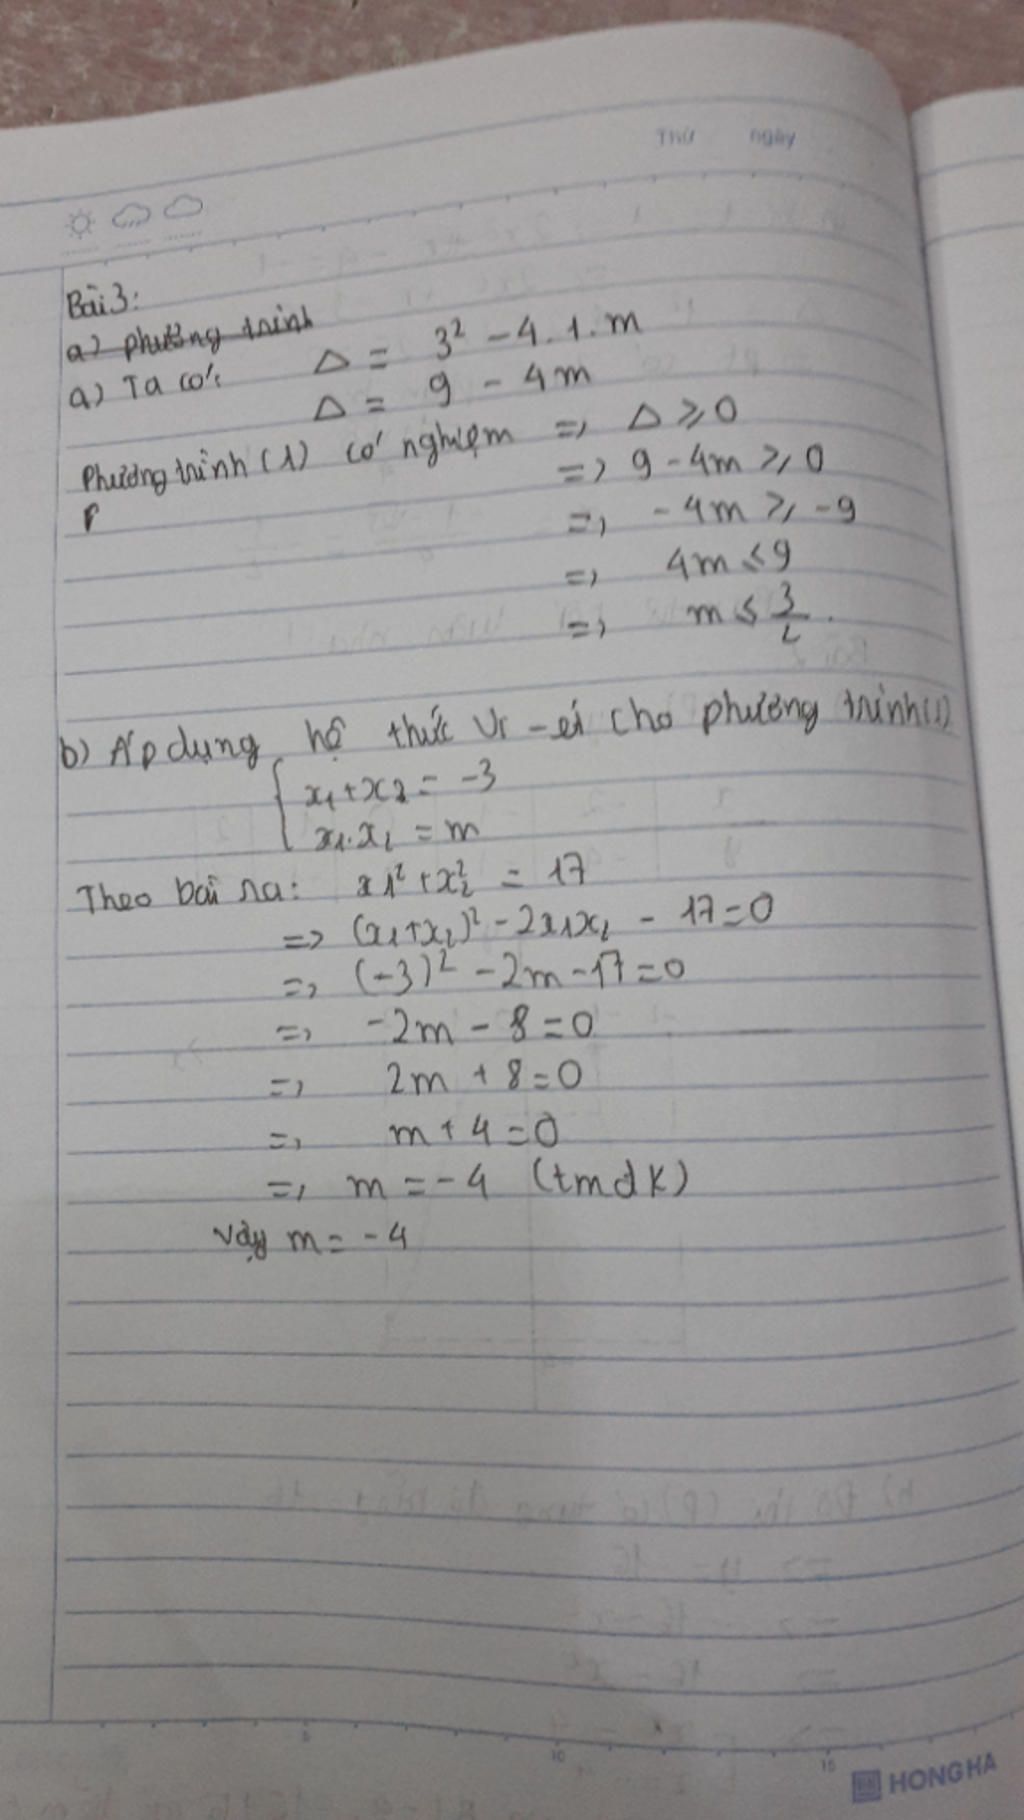 Thứ ngày
Bài 3:
a) phương trình
a) Ta có: Δ = 3² - 4.1.m
Δ = 9 - 4m
Phương trình (1) có nghiệm => Δ ⩾ 0
P => 9 - 4m ⩾ 0
=> -4m ⩾ -9
=> 4m ⩽ 9
=> m ⩽ 3/2.
b) Áp dụng hệ thức Vi-ét cho phương trình (1)
{ x₁ + x₂ = -3
x₁.x₂ = m
Theo bài ra: x₁² + x₂² = 17
=> (x₁+x₂)² - 2x₁x₂ - 17 = 0
=> (-3)² - 2m - 17 = 0
=> -2m - 8 = 0
=> 2m + 8 = 0
=> m + 4 = 0
=> m = -4 (tmdk)
Vậy m = -4
5 10 15
HONG HA